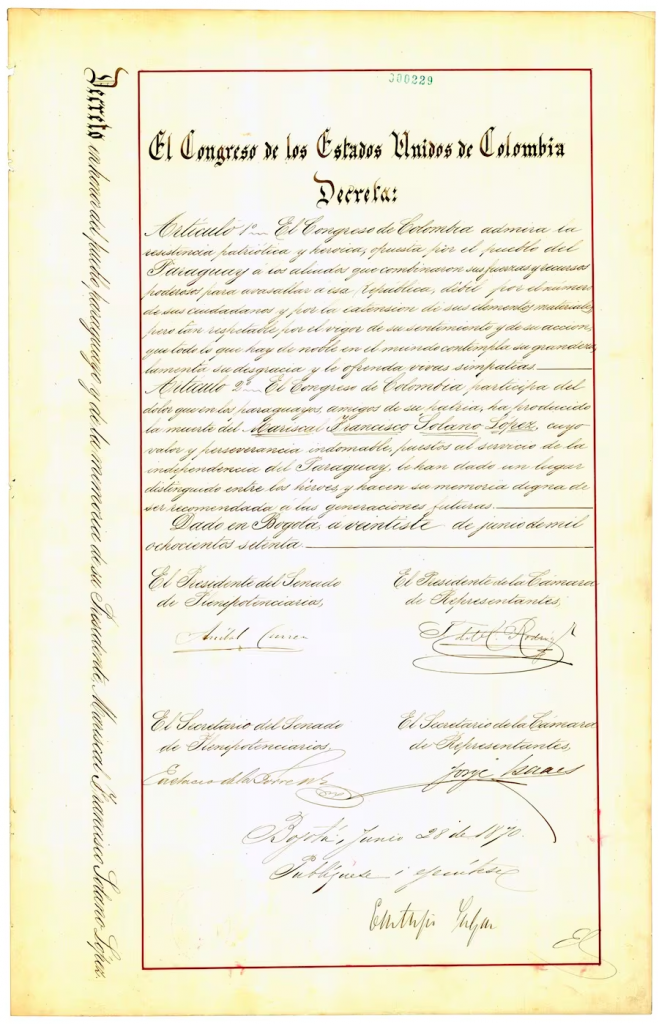 Decreto en honor del pueblo paraguayo y de la memoria de su Presidente, Mariscal Francisco Solano López.
300229
El Congreso de los Estados Unidos de Colombia
Decreta:
Artículo 1º El Congreso de Colombia admira la
resistencia patriótica y heroica, opuesta por el pueblo del
Paraguay a los aliados que combinaron sus fuerzas y recursos
poderosos para avasallar a esa República, débil por el número
de sus ciudadanos y por la extensión de sus elementos materiales,
pero tan respetable por el vigor de su sentimiento y de su acción,
que todo lo que hay de noble en el mundo contempla su grandeza,
lamenta su desgracia y le ofrenda vivas simpatías.
Artículo 2º El Congreso de Colombia participa del
dolor que en los paraguayos, amigos de su patria, ha producido
la muerte del Mariscal Francisco Solano López, cuyo
valor y perseverancia indomable, puestos al servicio de la
independencia del Paraguay, le han dado un lugar
distinguido entre los héroes, y hacen su memoria digna de
ser recomendada á las generaciones futuras.
Dado en Bogotá, á veintisiete de junio de mil
ochocientos setenta
El Presidente del Senado
de Plenipotenciarios,
El Presidente de la Cámara
de Representantes,
El Secretario del Senado
de Plenipotenciarios,
El Secretario de la Cámara
de Representantes,
Jorge Isaacs
Bogotá, Junio 28 de 1870.
Publíquese i ejecútese